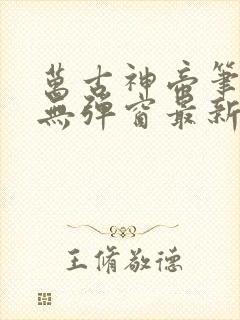 萬古神帝筆
無彈窗最新
王脩敬德